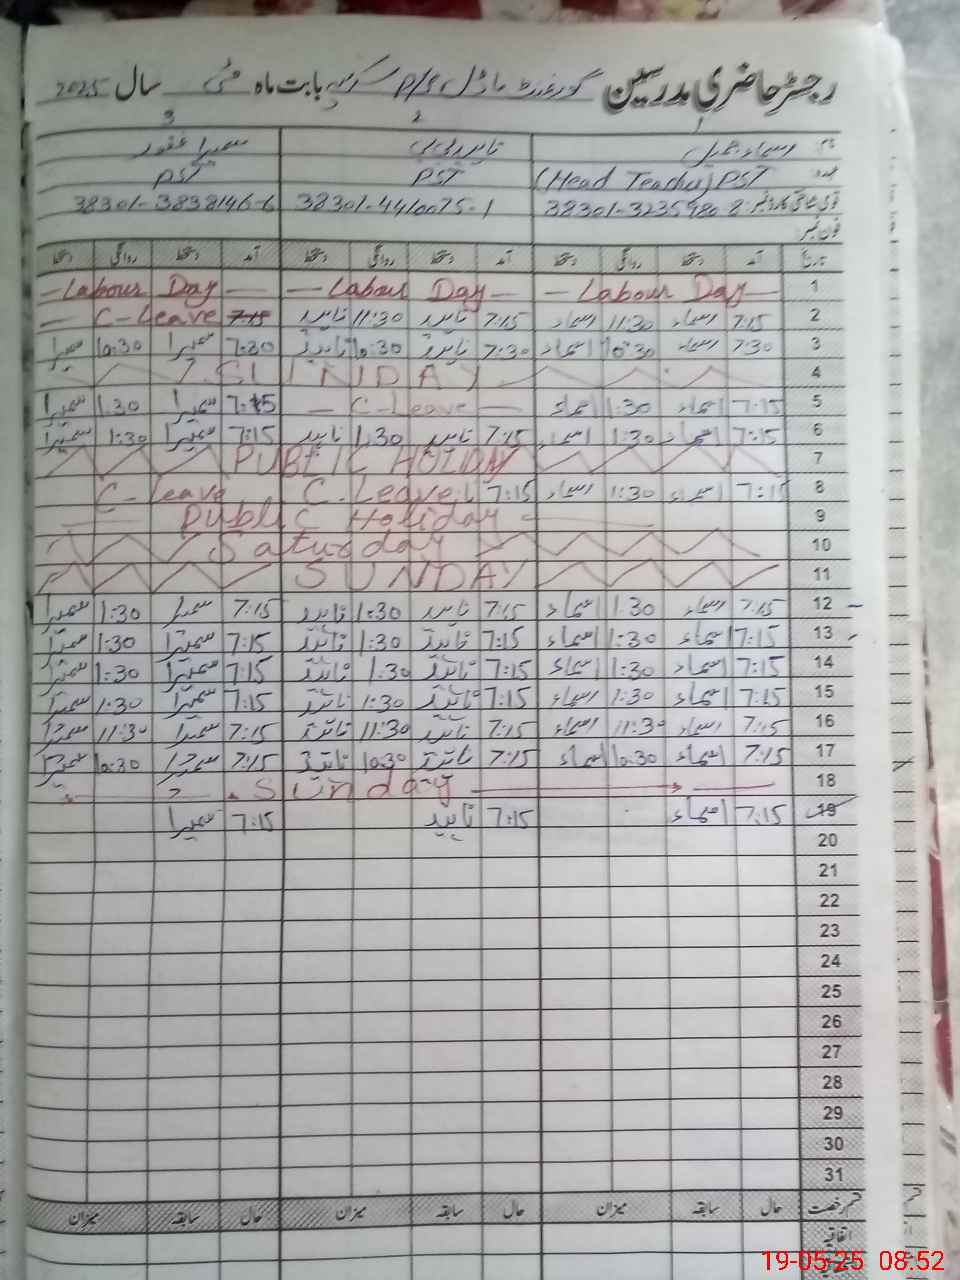 رجسٹر حاضری مدرسین گورنمنٹ ماڈل P/S بابت ماہ مئی سال 2025
1 2 3
نام اسماء سمیرا غفور
عہدہ PST (Head Teacher) PST PST
قومی شناختی کارڈ نمبر: 38301-4410075-1 38301-3838146-6
فون نمبر
تاریخ آمد دستخط روانگی دستخط آمد دستخط روانگی دستخط آمد دستخط روانگی دستخط
1 Labour Day Labour Day Labour Day
2 7:15 اسماء 11:30 اسماء 7:15 تائید 11:30 تائید 7:15 C-Leave
3 7:30 اسماء 10:30 اسماء 7:30 تائید 10:30 تائید 7:30 سمیرا 10:30 سمیرا
4 SUNDAY
5 7:15 اسماء 1:30 اسماء C-Leave 7:15 سمیرا 1:30 سمیرا
6 7:15 اسماء 1:30 اسماء 7:15 تائید 1:30 تائید 7:15 سمیرا 1:30 سمیرا
7 PUBLIC HOLIDAY
8 7:15 اسماء 1:30 اسماء 7:15 C-Leave C-Leave
9 Public Holiday
10 Saturday
11 SUNDAY
12 7:15 اسماء 1:30 اسماء 7:15 تائید 1:30 تائید 7:15 سمیرا 1:30 سمیرا
13 7:15 اسماء 1:30 اسماء 7:15 تائید 1:30 تائید 7:15 سمیرا 1:30 سمیرا
14 7:15 اسماء 1:30 اسماء 7:15 تائید 1:30 تائید 7:15 سمیرا 1:30 سمیرا
15 7:15 اسماء 1:30 اسماء 7:15 تائید 1:30 تائید 7:15 سمیرا 1:30 سمیرا
16 7:15 اسماء 11:30 اسماء 7:15 تائید 11:30 تائید 7:15 سمیرا 11:30 سمیرا
17 7:15 اسماء 10:30 اسماء 7:15 تائید 10:30 تائید 7:15 سمیرا 10:30 سمیرا
18 Sunday
19 7:15 اسماء 7:15 تائید 7:15 سمیرا
20
21
22
23
24
25
26
27
28
29
30
31
قسم رخصت حال سابقہ میزان حال سابقہ میزان حال سابقہ میزان
اتفاقیہ
19-05-25 08:52